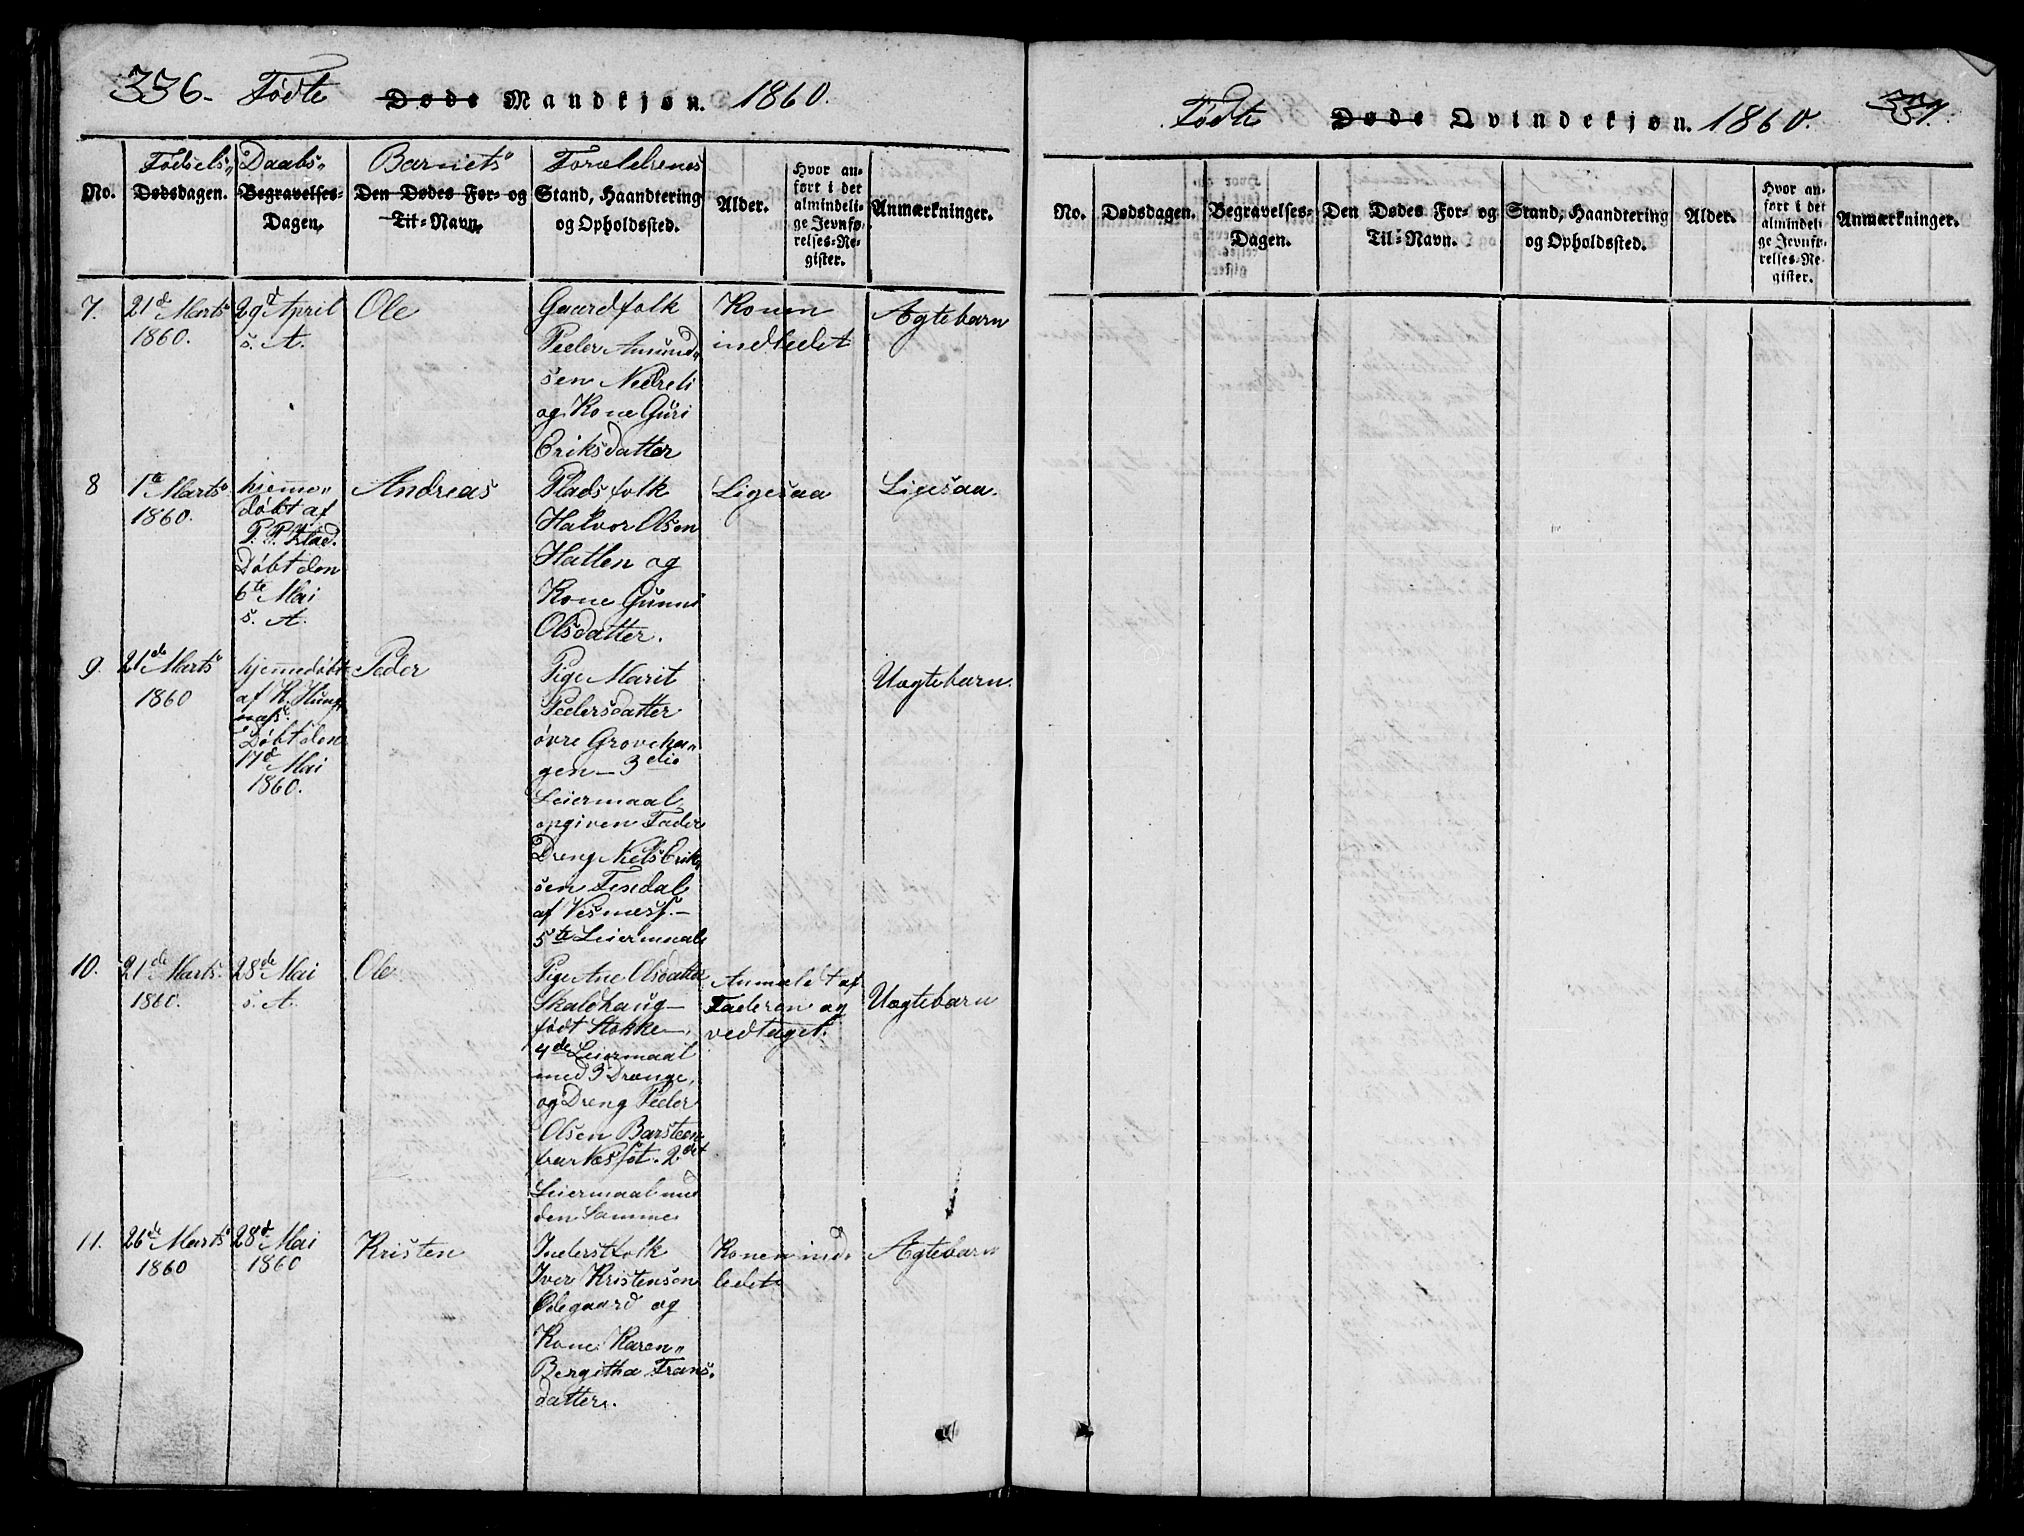 336. Födte Døde Mandkjøn. 1860.
Fødsels" Daabs" Barnets" Forældrenes
No. Dødsdagen. Begravelses-Dagen. Den Dødes For- og Til-Navn. Stand, Haandtering og Opholdssted. Alder. Hvor anført i det almindelige Jevnførelses-Register. Anmærkninger.
7. 21d Marts 29d April Ole Gaardfolk Konen Ægtebarn
1860. s. A. Peder Amund- indledet
sen Nedreli
og Kone Guri
Eriksdatter
8 1te Marts hjemme" Andreas Pladsfolk Ligesaa Ligesaa.
1860. døbt af Halvor Olsen
Hatlen og
Døbt den Kone Gunni
6te Mai Olsdatter.
s. A.
9. 21de Marts hjemmedøbt Peder Pige Marit Uægtebarn.
1860 af Pedersdatter
øvre Groveha-
Døbt den gen - 3die
17d Mai Leiermaal
1860. opgiven Fader
Dreng Niels Erik-
sen
af
5te Leiermaal
10. 21de Marts 28de Mai Ole Pige Ane Olsdatter Anmeldt af Uægtebarn
1860. s. A. Skaldhaug - Faderen og
født Stokke - vedtaget.
4de Leiermaal
med 3 Drenge,
og Dreng Peder
Olsen Barsteen
2det
Leiermaal med
den Samme
11. 26de Marts 28d Mai Kristen Inderstfolk Konen ind- Ægtebarn
1860 1860 Iver Kristensen ledet
Ødegaard og
Kone Karen"
Bergitha Frans-
datter.
Födte Døde Qvindekjøn. 1860. 337.
No. Dødsdagen. Begravelses-Dagen. Den Dødes For- og Til-Navn. Stand, Haandtering og Opholdssted. Alder. Hvor anført i det almindelige Jevnførelses-Register. Anmærkninger.